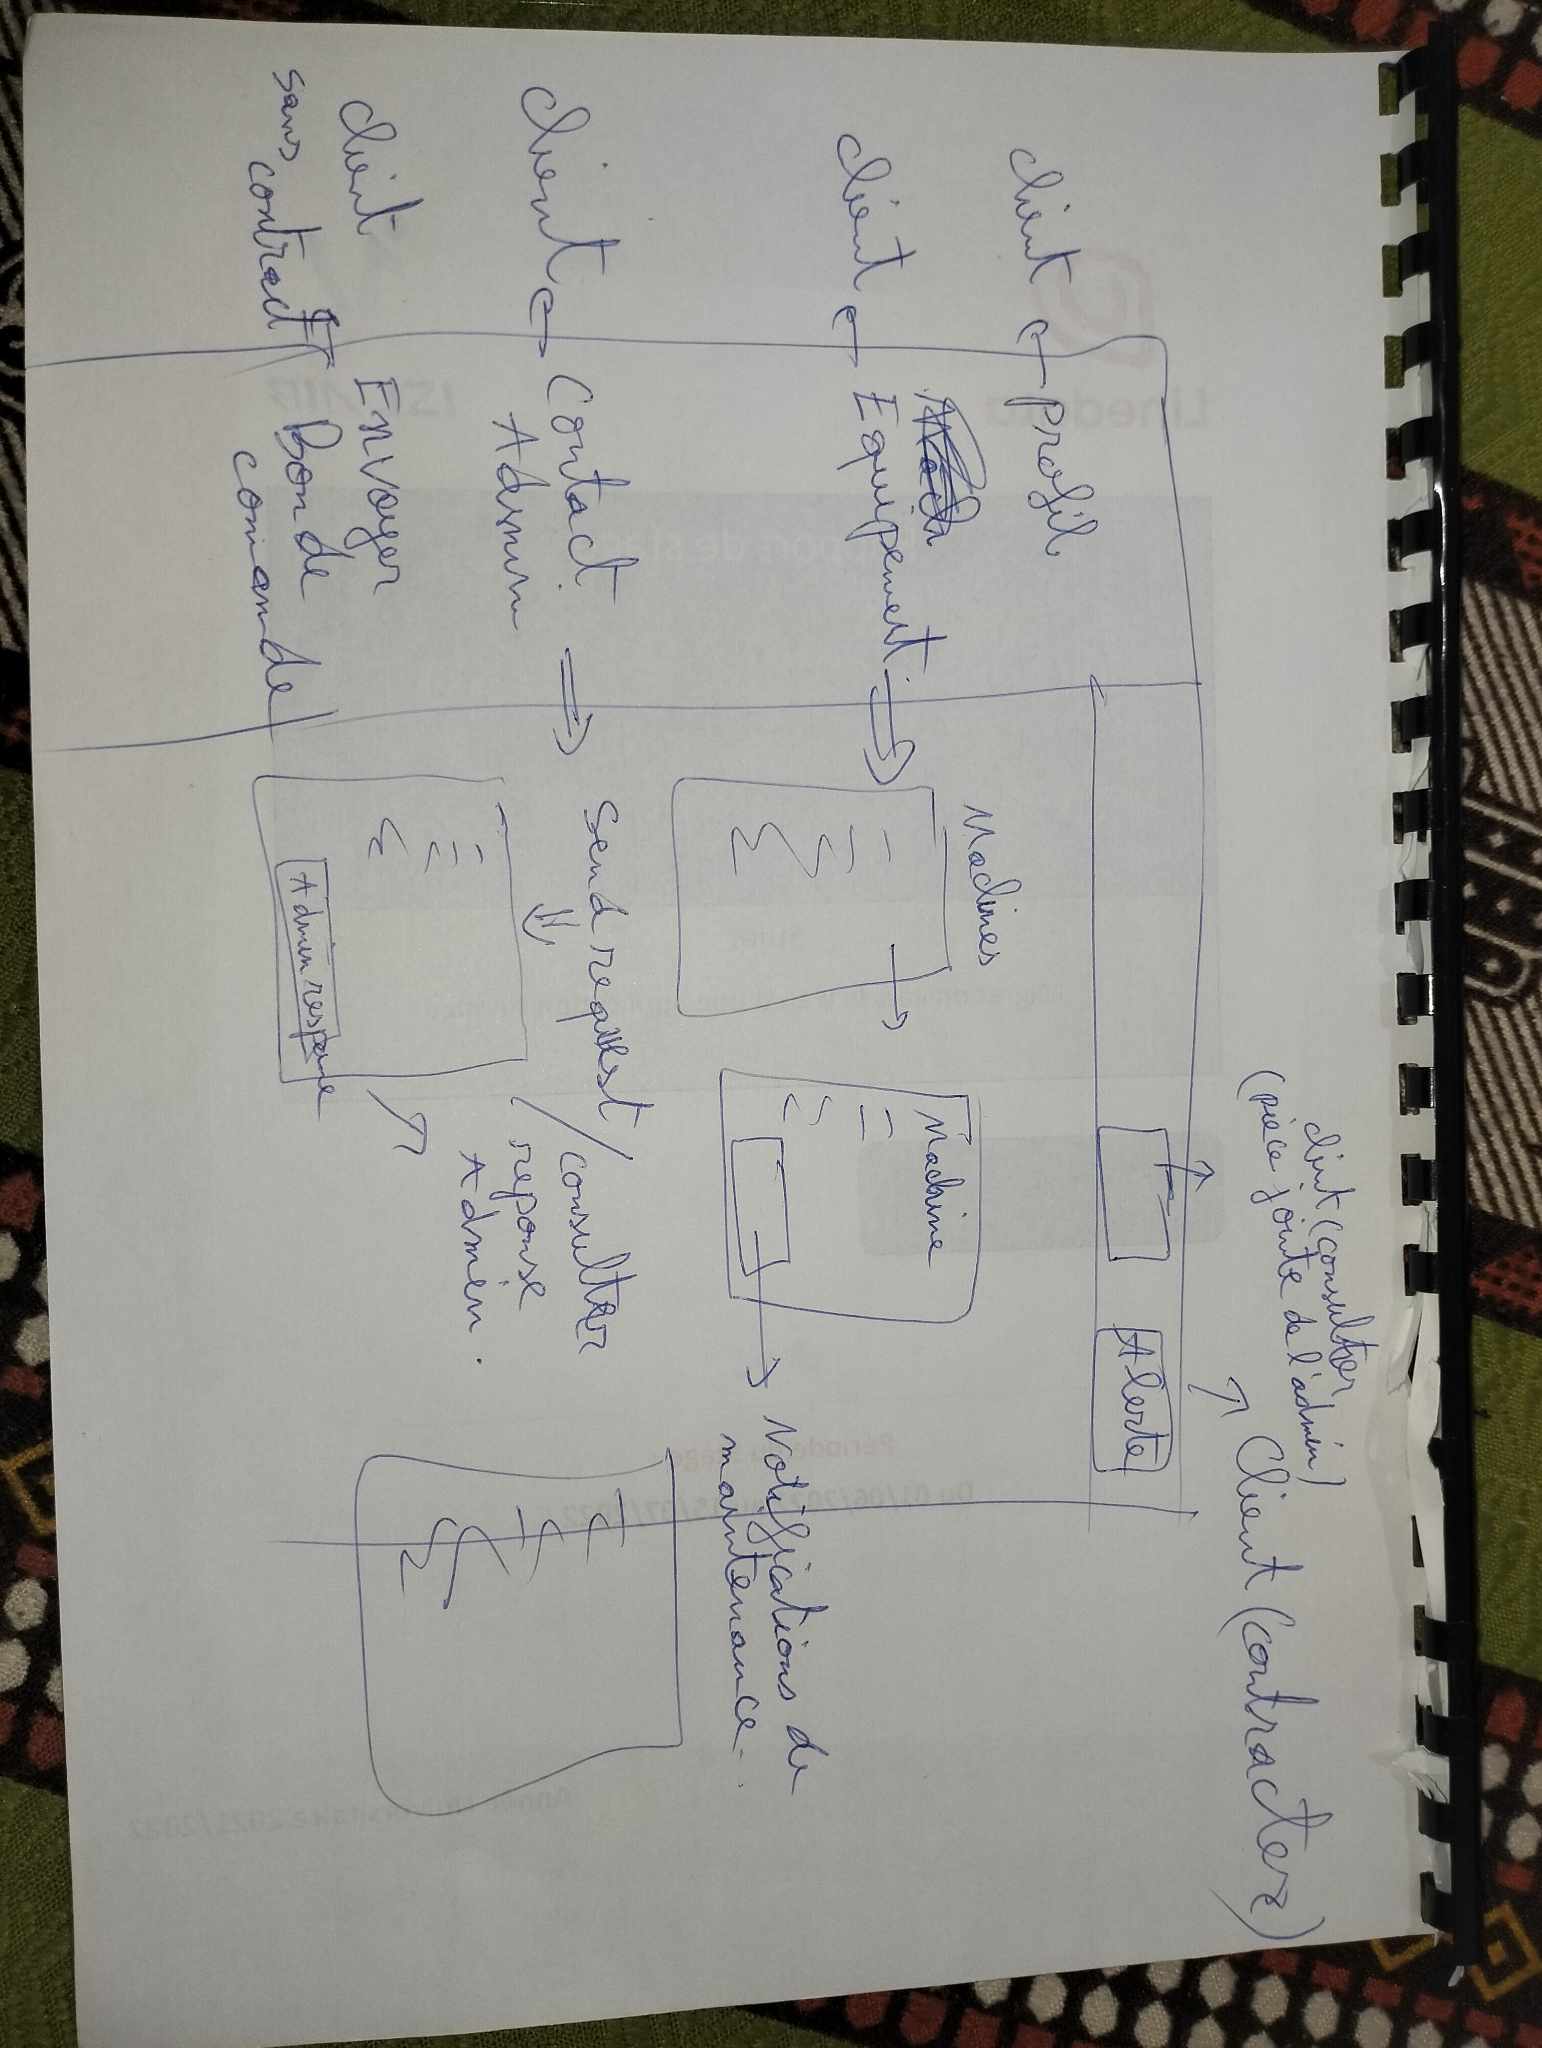 client (consulter
(pièce jointe de l'admin)
Client (contracter)
Alerte
client
profil
Machines
client
Equipement
Machine
Notifications de
maintenance.
client
Contact
Admin
Send request
/
consulter
reponse
Admin.
client
sans
contract
Envoyer
Bon de
comande
Admin response